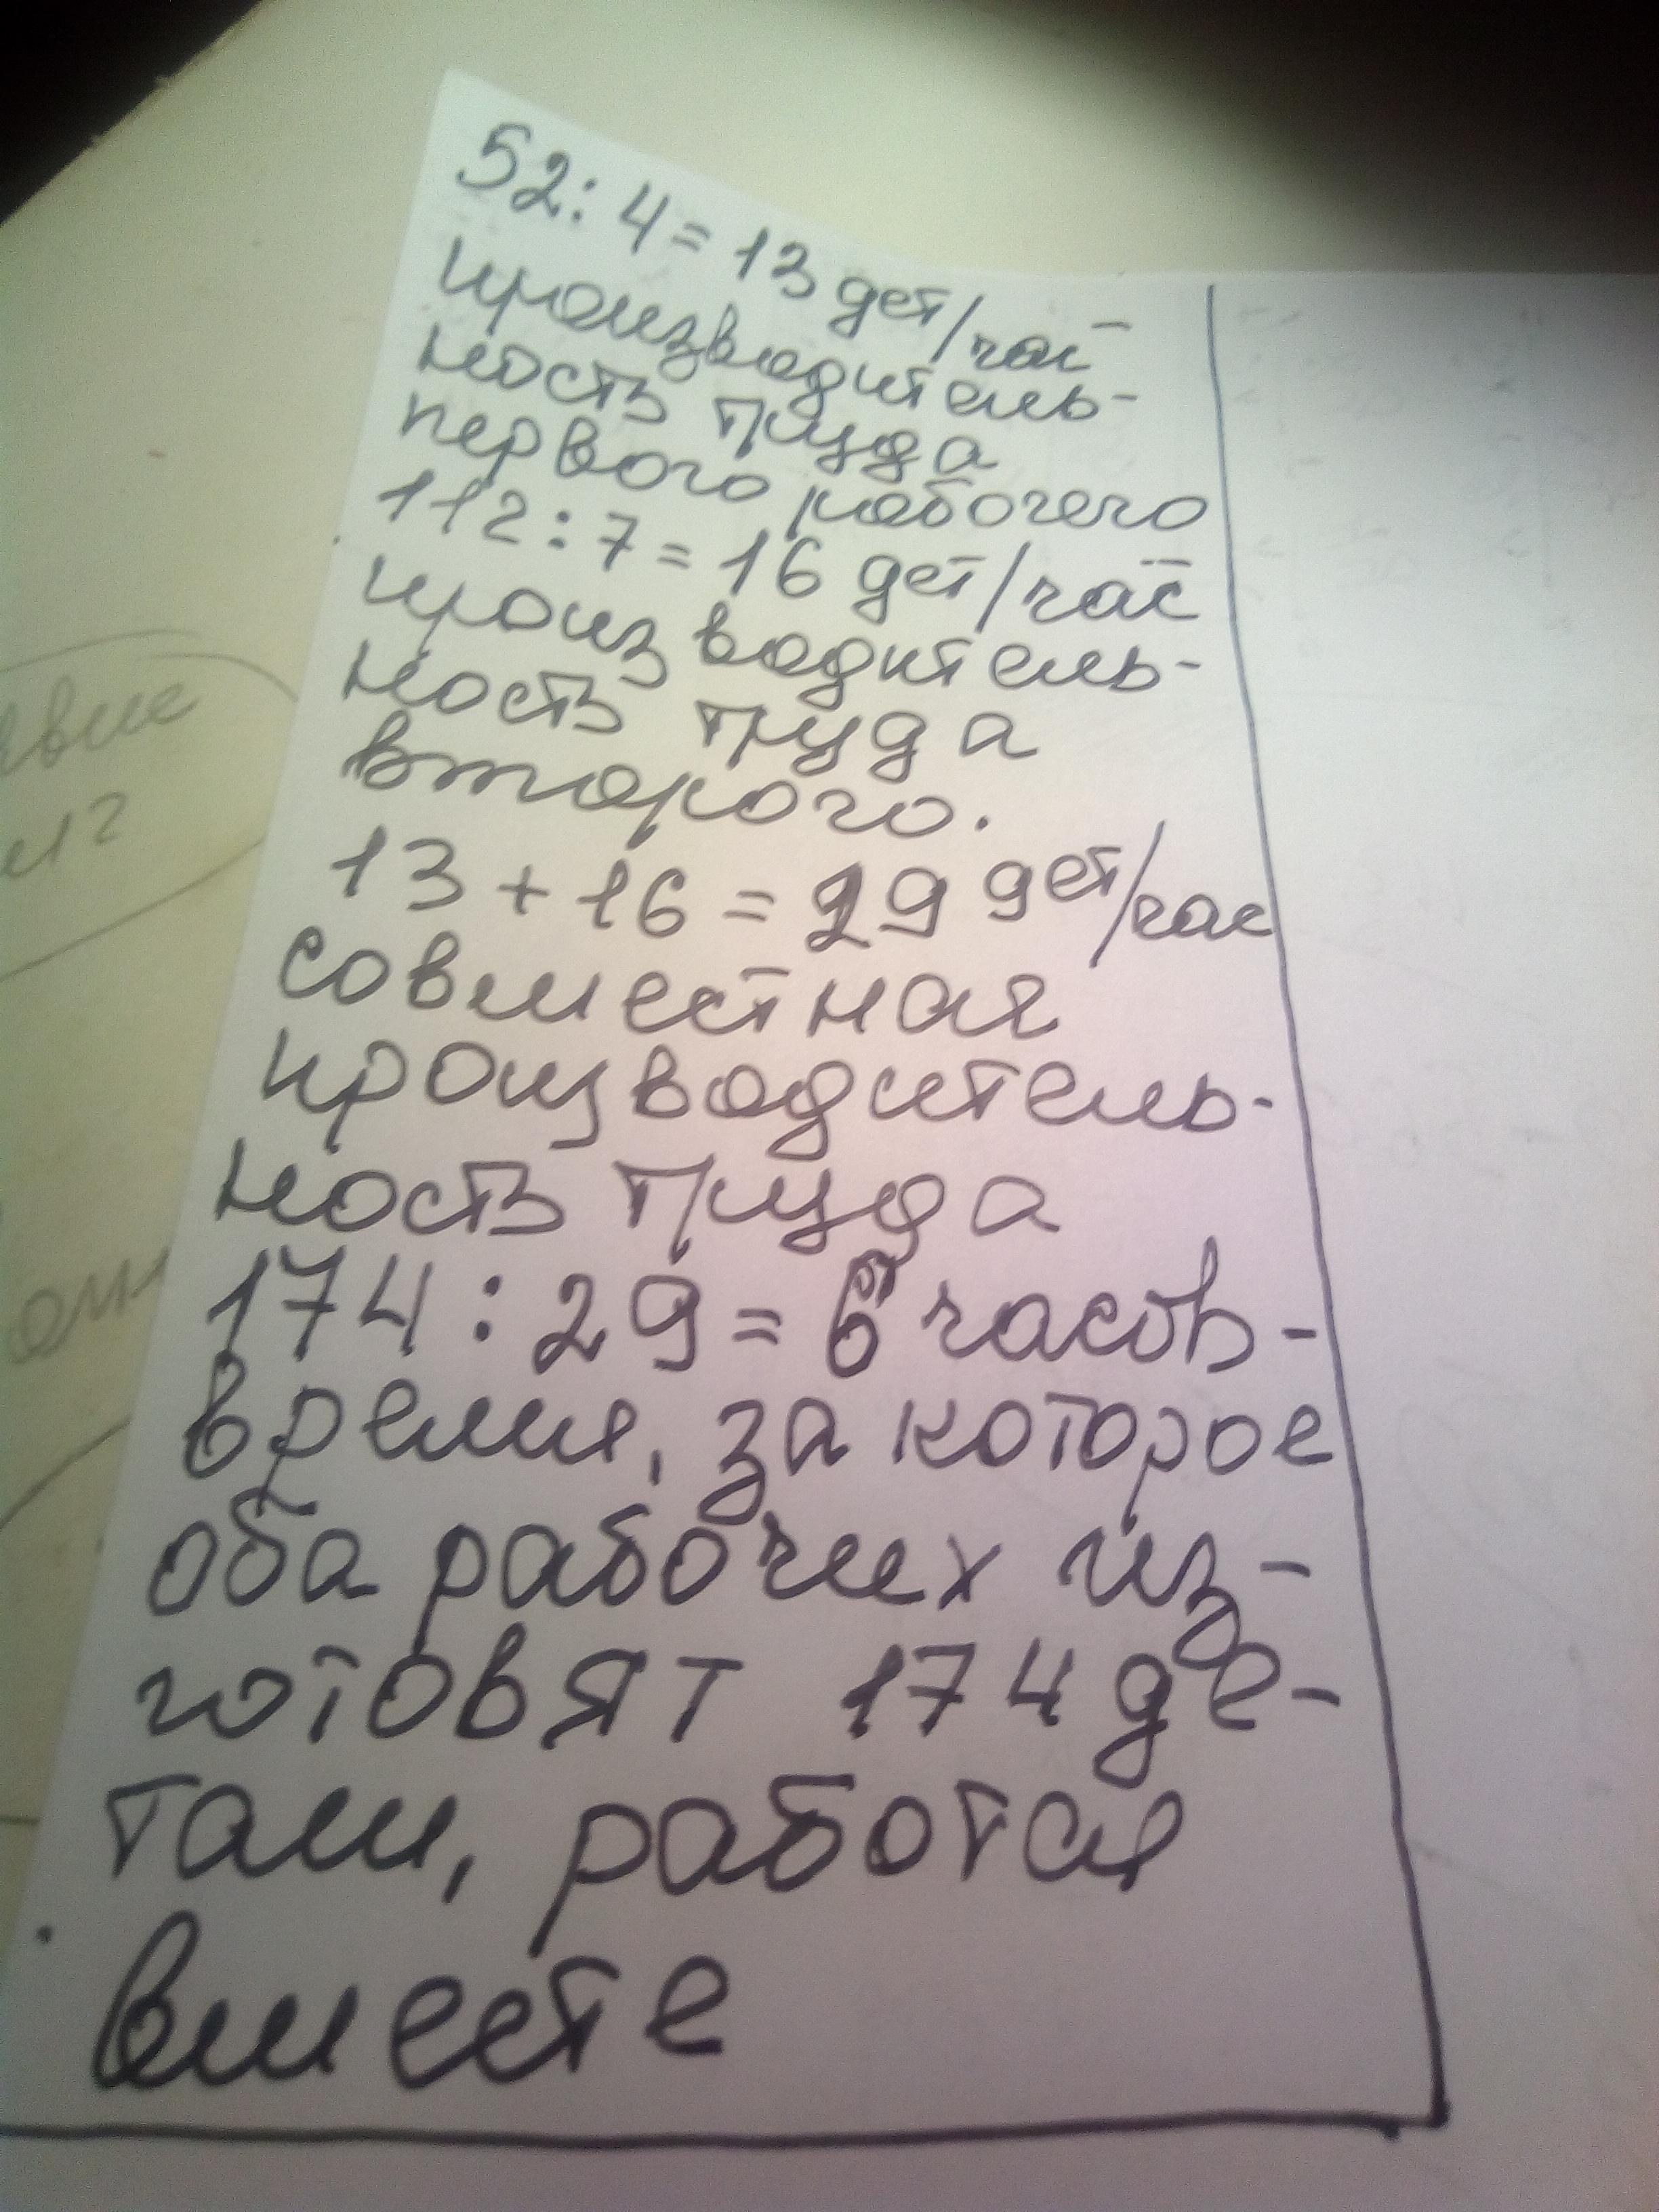 52:4=13 дет/час
производитель-
ность труда
первого рабочего
112:7=16 дет/час
производитель-
ность труда
второго.
13+16=29 дет/час
совместная
производитель-
ность труда
174:29=6 часов-
время, за которое
оба рабочих из-
готовят 174 де-
тали, работая
вместе